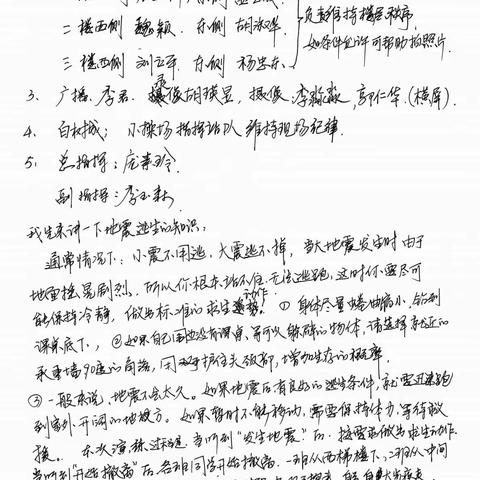 二楼西侧 魏颖. 东侧 胡淑华. 负责维持楼层秩序
三楼西侧 刘 东侧 杨忠东. 如条件允许可帮助拍照片.
3、广播:李君. 摄像 胡瑛显, 摄像:李 , 郭仁华.(横屏).
4、白树成: 小操场指挥站队 维持现场纪律.
5、总指挥:庞素玲.
副指挥:李玉
我先来讲一下地震逃生的知识:
通常情况下:小震不用逃, 大震逃不掉, 当大地震发生时由于
地面摇晃剧烈, 所以你根本站不住, 无法逃跑, 这时你要尽可
能保持冷静, 做出标准的求生动作: ① 身体尽量蜷曲缩小, 躲到
课桌底下, ② 如果自己周边没有课桌等可以躲避的物体, 请选择就近的
承重墙90度的角落, 用双手抱住头颈部, 增加生存的概率.
③ 一般来说, 地震不会太久. 如果地震后有良好的逃生条件, 就要迅速跑
到室外开阔的地方. 如果暂时不能移动, 需要保持体力, 等待救
援. 本次演练过程是 当听到"发生地震"后. 按要求做出求生动作.
当听到"开始撤离"后 各班同学开始撤离. 一班从西梯楼下, 二班从中间